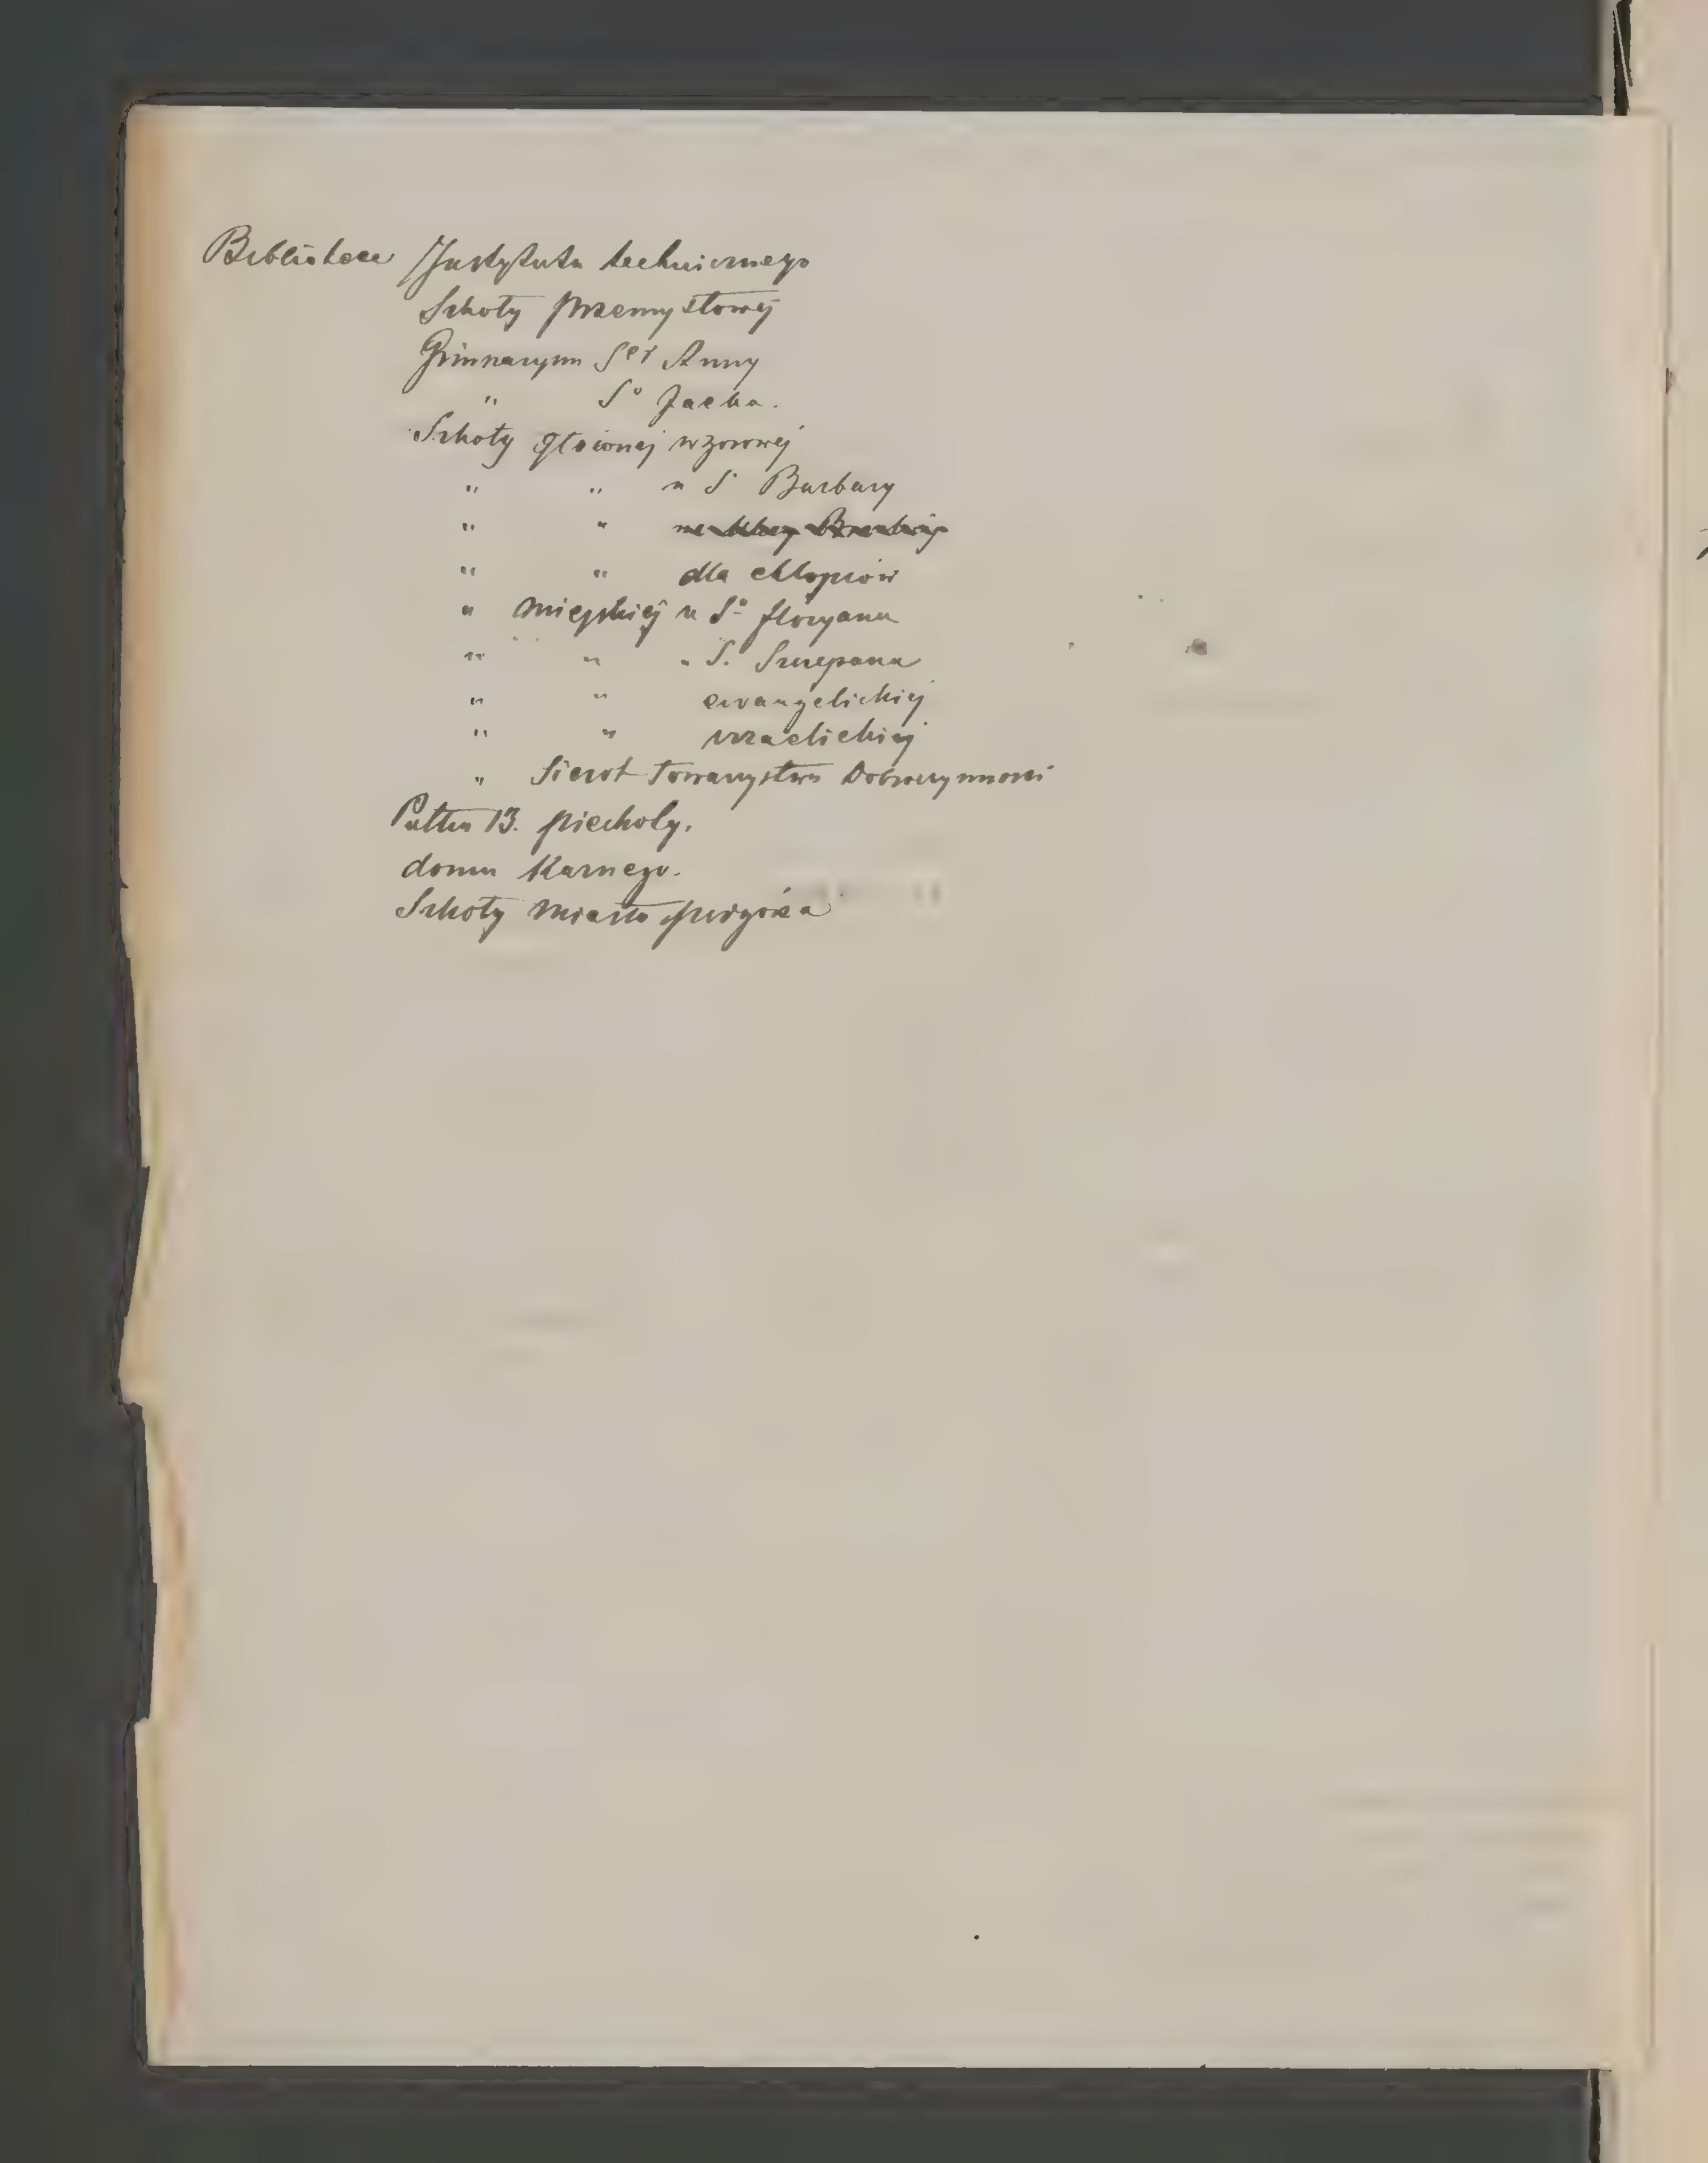 Bibliotece Instytutu technicznego
Szkoły przemysłowej
Gimnazyum Sej Anny
" So Jacka.
Szkoły głównej wzorowej
" " u S Barbary
" "
" " dla chłopców
" miejskiej u So floryana
" " " S. Szczepana
" " ewangelickiej
" " izraelickiej
" Sierot Towarzystwa Dobroczynności
Pułku 13. piechoty.
domu Karnego.
Szkoły Miasta podgórza